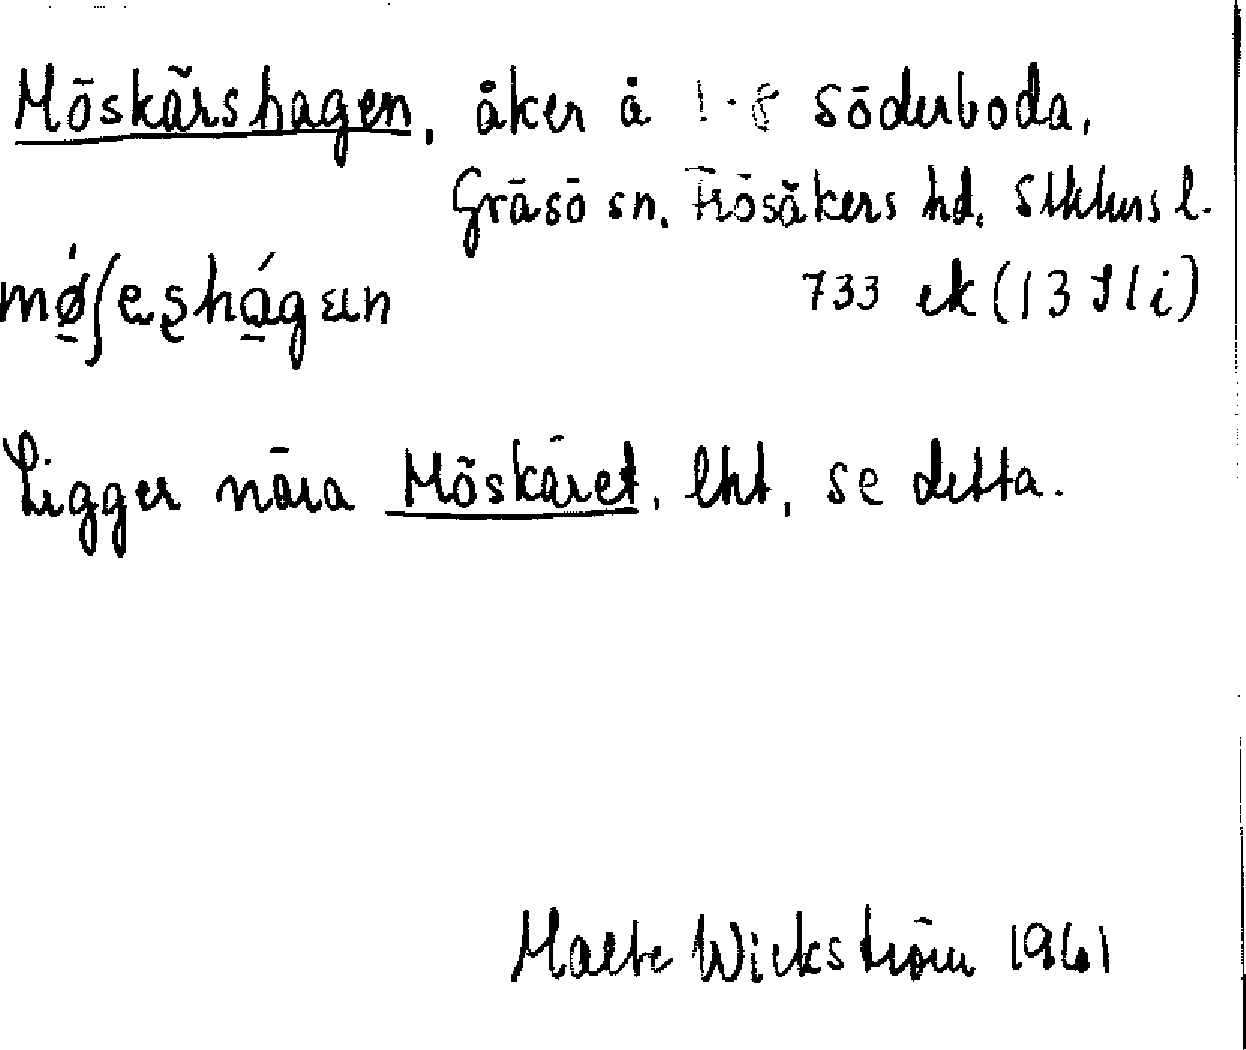 Möskärshagen, åker å 1-8 Söderboda,
Gräsö sn, Frösåkers hd, Sthlms l.
733 ek (13 I 1 i)
Ligger nära Möskäret, lht, se detta.
Malte Wickström 1961